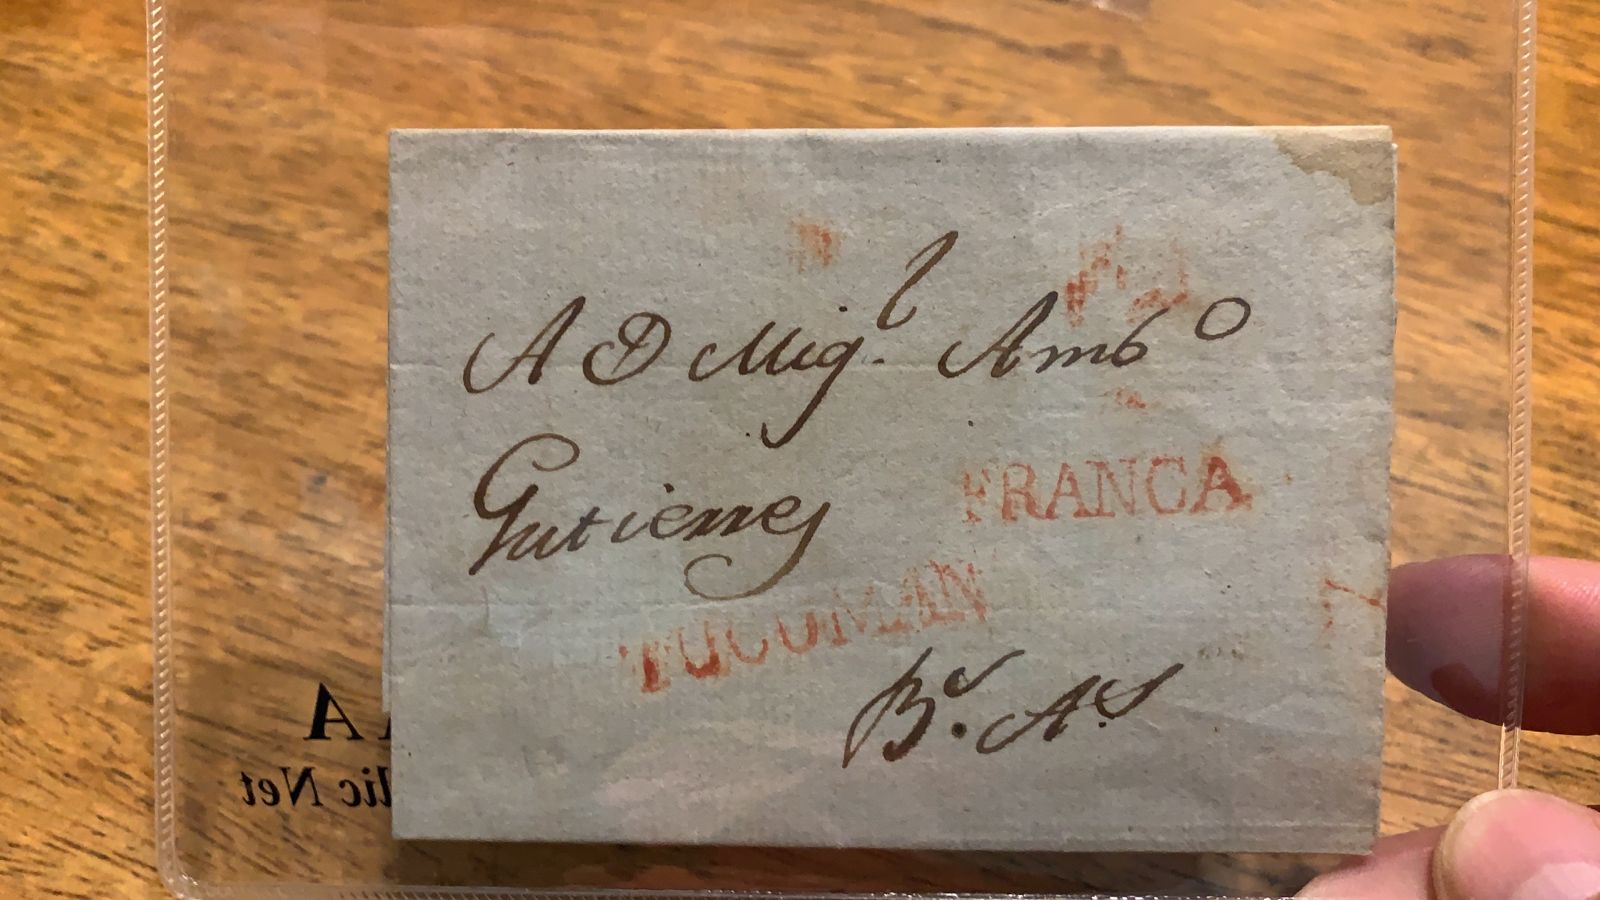 A D Mig.l Ambo
Gutierres
FRANCA
TUCUMAN
Bs. As
A
lic Net